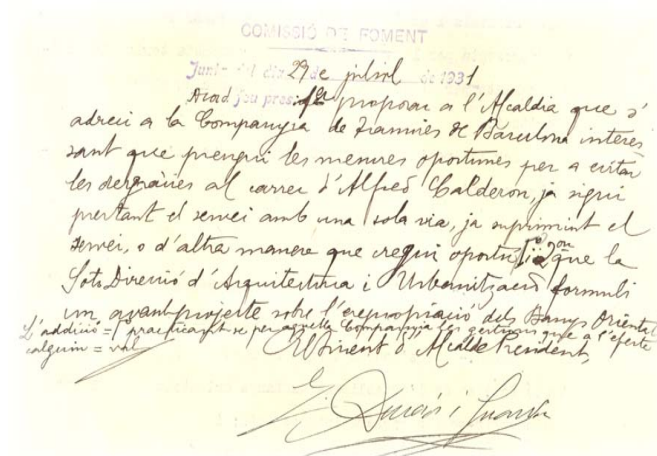 COMISSIÓ DE FOMENT
Junta del dia 29 de juliol de 1931
Acord jeu presidº proposar a l'Alcaldia que s'
adreci a la Companyia de Tramvies de Barcelona interes
sant que prengui les mesures oportunes per a evitar
les desgràcies al carrer d'Alfred Calderon, ja sigui
prestant el servei amb una sola via, ja suprimint el
servei, o d'altra manera que cregui oportú i 2on que la
Sots Direcció d'Arquitectura i Urbanització formuli
un avantprojecte sobre l'expropiació dels Banys Orientals
L'addició = 1º practicant-se per aquella Companyia les gestions que a l'efecte
calguin = val
El Tinent d'Alcalde President,